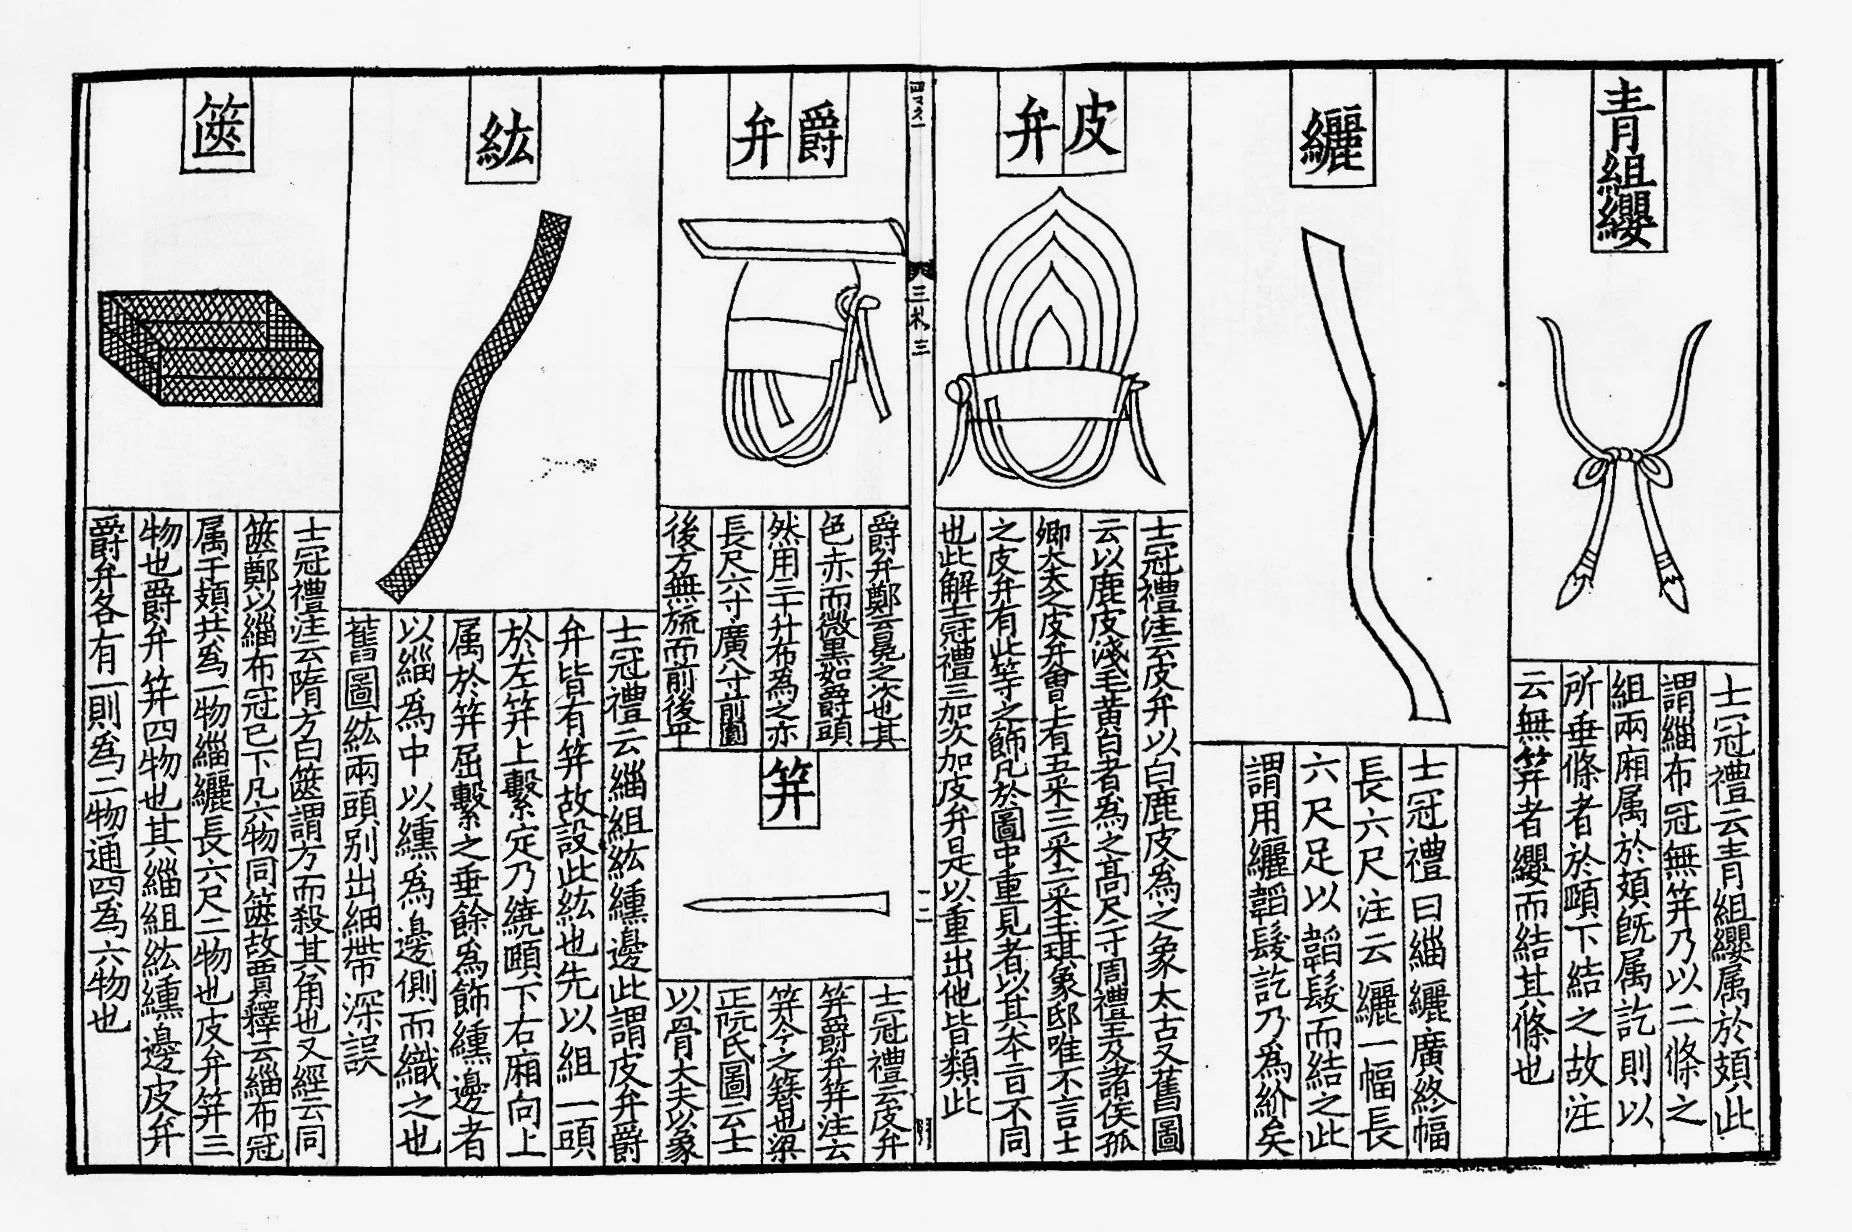 青組纓
士冠禮云青組纓属於頍此
謂緇布冠無笄乃以二條之
組兩廂属於頍既属訖則以
所垂條者於頤下結之故注
云無笄者纓而結其條也
纚
士冠禮曰緇纚廣終幅
長六尺注云纚一幅長
六尺足以韜髮而結之此
謂用纚韜髮訖乃爲紒矣
皮弁
士冠禮注云皮弁以白鹿皮爲之象太古又舊圖
云以鹿皮淺毛黄白者爲之高尺二寸周禮王及諸侯孤
卿大夫之皮弁會上有五采三采二采玉琪象邸唯不言士
之皮弁有此等之飾凡於圖中重見者以其本旨不同
也此解士冠禮三加次加皮弁是以重出他皆類此
三礼三
二
爵弁
爵弁鄭云冕之次也其
色赤而微黒如爵頭
然用三十升布為之亦
長尺六寸廣八寸前圓
後方無旒而前後平
笄
士冠禮云皮弁
笄爵弁笄注云
笄今之簪也梁
正阮氏圖云士
以骨大夫以象
紘
士冠禮云緇組紘纁邊此謂皮弁爵
弁皆有笄故設此紘也先以組一頭
於左笄上繫定乃繞頤下右廂向上
属於笄屈繫之垂餘爲飾纁邊者
以緇爲中以纁爲邊側而織之也
舊圖紘兩頭别出細帶深誤
篋
士冠禮注云隋方曰篋謂方而殺其角也又經云同
篋鄭以緇布冠已下凡六物同篋故賈釋云緇布冠
属于頍共爲一物緇纚長六尺二物也皮弁笄三
物也爵弁笄四物也其緇組紘纁邊皮弁
爵弁各有一則爲二物通四爲六物也